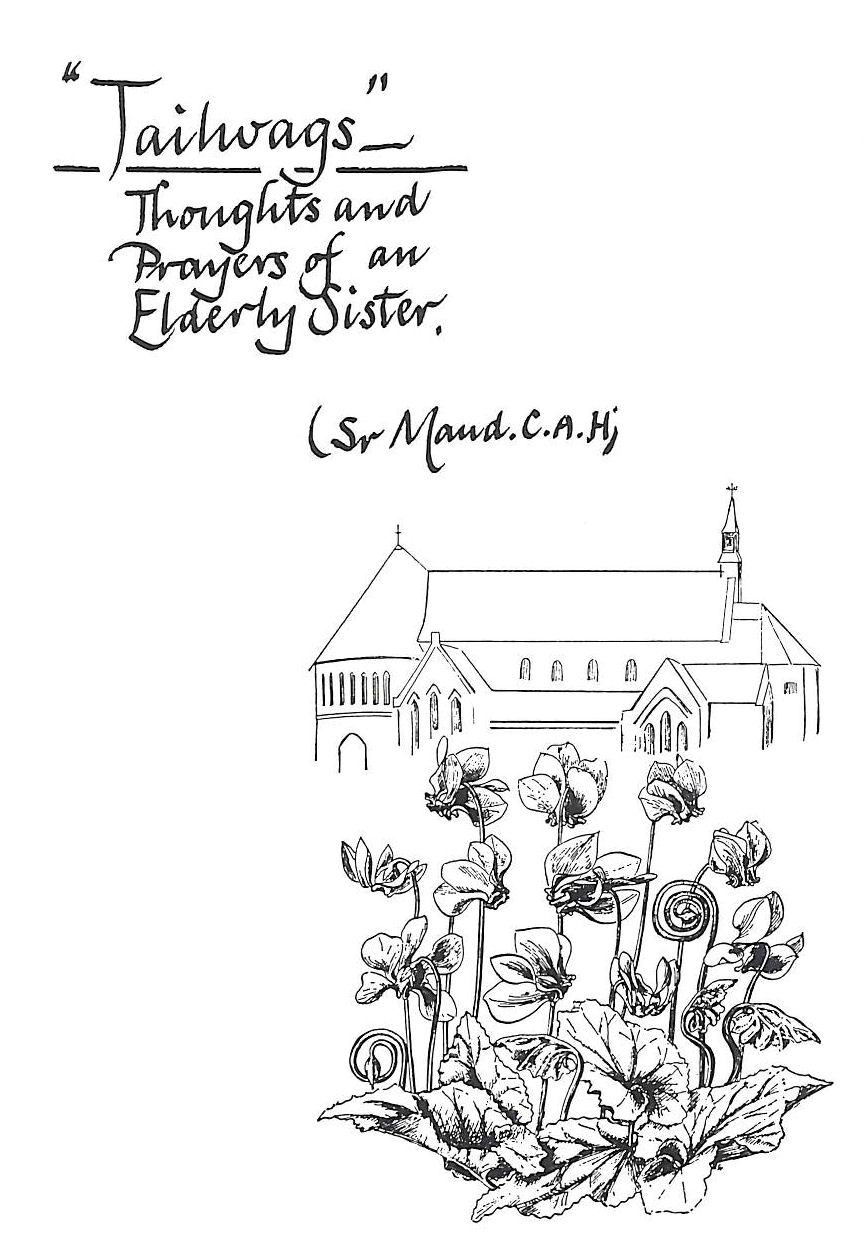 "Tailwags"
Thoughts and
Prayers of an
Elderly Sister.
(Sr Maud. C.A.H)